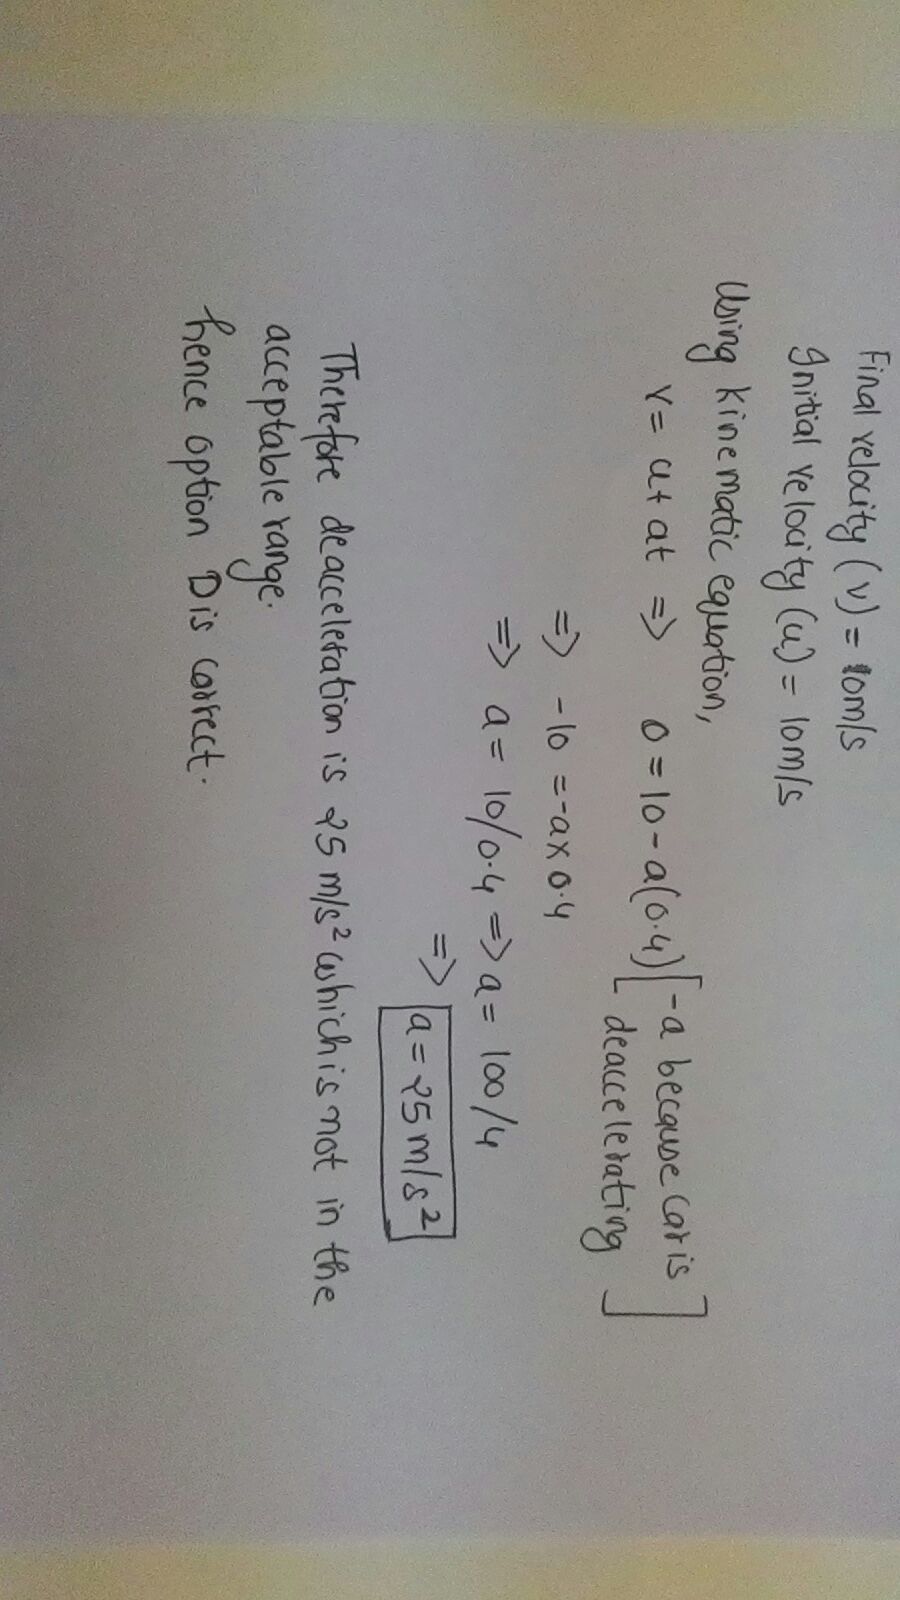 Final velocity (v) = 0m/s
Initial velocity (u) = 10m/s
Using kinematic equation,
v = u + at => 0 = 10 - a(0.4) [-a because car is
deaccelerating]
=> -10 = -a x 0.4
=> a = 10/0.4 => a = 100/4
=> a = 25 m/s²
Therefore deacceleration is 25 m/s² which is not in the
acceptable range.
hence option D is correct.